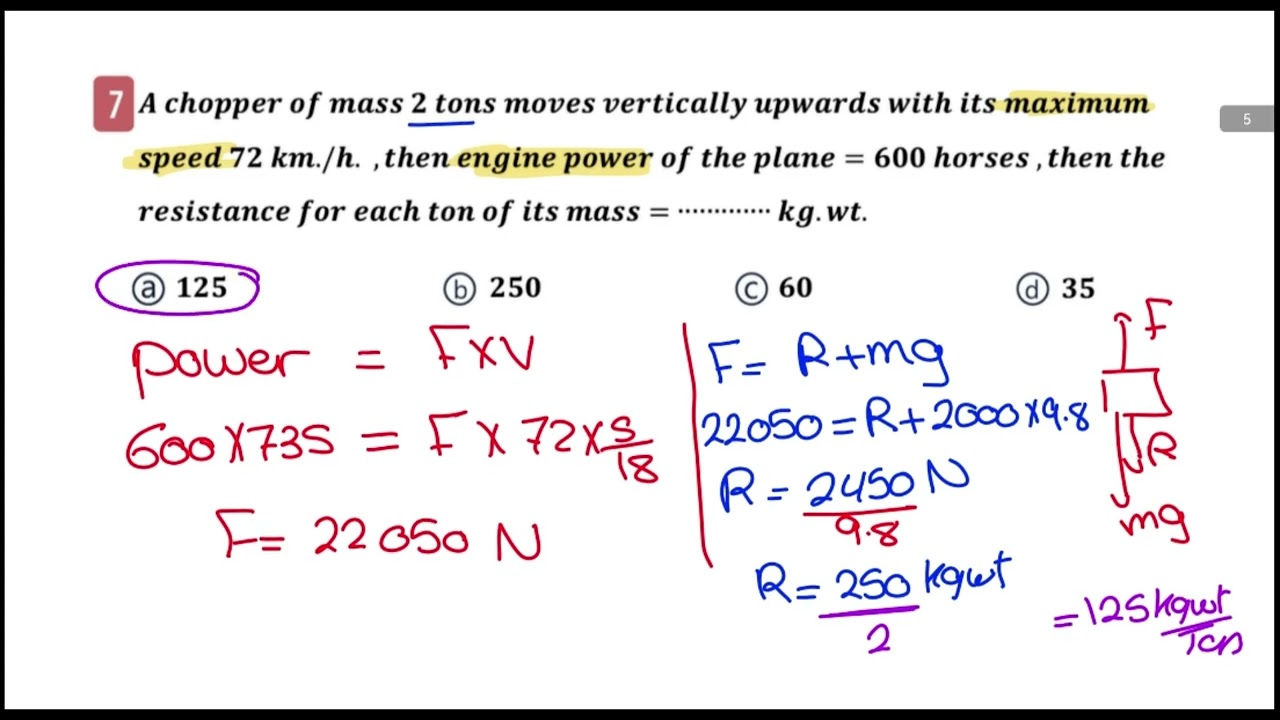 7 A chopper of mass 2 tons moves vertically upwards with its maximum
5
speed 72 km./h. , then engine power of the plane = 600 horses , then the
resistance for each ton of its mass = ············· kg.wt.
ⓐ 125 ⓑ 250 ⓒ 60 ⓓ 35
power = F×V
600×735 = F × 72 × 5/18
F= 22050 N
F= R+mg
22050 = R+2000×9.8
R = 2450 N / 9.8
R = 250 kgwt / 2
= 125 kgwt/Ton
F
R
mg